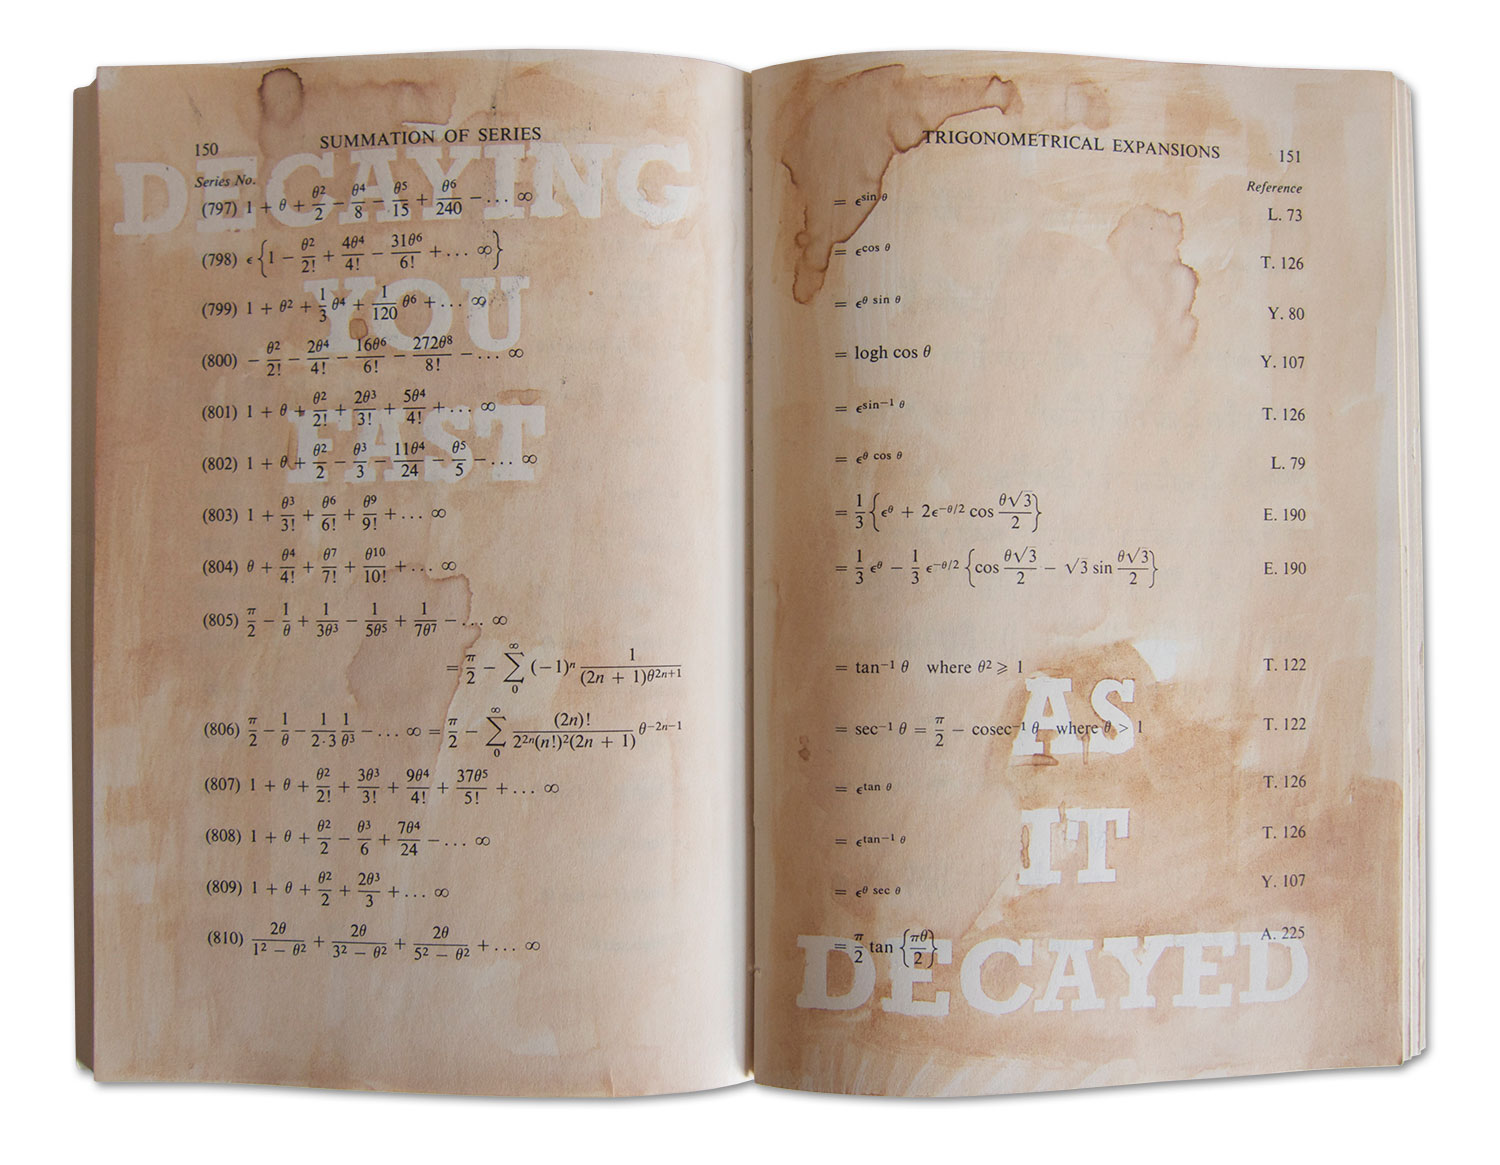 150 SUMMATION OF SERIES
DECAYING
Series No.
(797) 1 + θ + θ²/2 − θ⁴/8 − θ⁵/15 + θ⁶/240 − ... ∞
(798) ϵ{1 − θ²/2! + 4θ⁴/4! − 31θ⁶/6! + ... ∞}
YOU
(799) 1 + θ² + 1/3 θ⁴ + 1/120 θ⁶ + ... ∞
(800) − θ²/2! − 2θ⁴/4! − 16θ⁶/6! − 272θ⁸/8! − ... ∞
(801) 1 + θ + θ²/2! + 2θ³/3! + 5θ⁴/4! + ... ∞
FAST
(802) 1 + θ + θ²/2 − θ³/3 − 11θ⁴/24 − θ⁵/5 − ... ∞
(803) 1 + θ³/3! + θ⁶/6! + θ⁹/9! + ... ∞
(804) θ + θ⁴/4! + θ⁷/7! + θ¹⁰/10! + ... ∞
(805) π/2 − 1/θ + 1/3θ³ − 1/5θ⁵ + 1/7θ⁷ − ... ∞
= π/2 − ∑₀^∞ (−1)ⁿ 1/(2n + 1)θ²ⁿ⁺¹
(806) π/2 − 1/θ − 1/2·3 1/θ³ − ... ∞ = π/2 − ∑₀^∞ (2n)!/2²ⁿ(n!)²(2n + 1) θ⁻²ⁿ⁻¹
(807) 1 + θ + θ²/2! + 3θ³/3! + 9θ⁴/4! + 37θ⁵/5! + ... ∞
(808) 1 + θ + θ²/2 − θ³/6 + 7θ⁴/24 − ... ∞
(809) 1 + θ + θ²/2 + 2θ³/3 + ... ∞
(810) 2θ/1² − θ² + 2θ/3² − θ² + 2θ/5² − θ² + ... ∞
TRIGONOMETRICAL EXPANSIONS 151
Reference
= ϵ^sin θ L. 73
= ϵ^cos θ T. 126
= ϵ^θ sin θ Y. 80
= logh cos θ Y. 107
= ϵ^sin⁻¹ θ T. 126
= ϵ^θ cos θ L. 79
= 1/3 {ϵ^θ + 2ϵ^−θ/2 cos θ√3/2} E. 190
= 1/3 ϵ^θ − 1/3 ϵ^−θ/2 {cos θ√3/2 − √3 sin θ√3/2} E. 190
= tan⁻¹ θ where θ² ⩾ 1 T. 122
AS
= sec⁻¹ θ = π/2 − cosec⁻¹ θ where θ > 1 T. 122
= ϵ^tan θ T. 126
IT
= ϵ^tan⁻¹ θ T. 126
= ϵ^θ sec θ Y. 107
= π/2 tan {πθ/2} A. 225
DECAYED